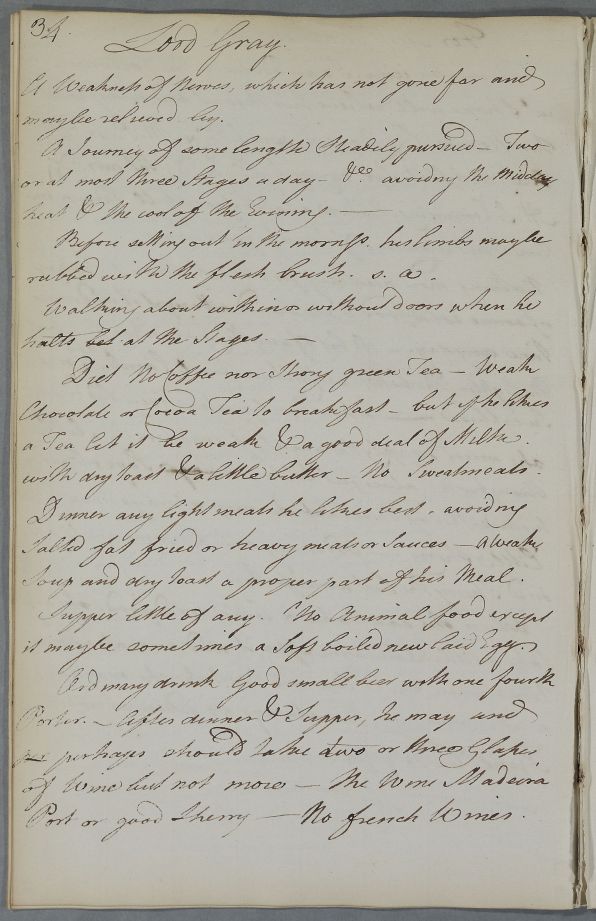 34.
Lord Gray.
A Weakness of Nerves, which has not gone far and
maybe relieved by.
A Journey of some length Steadily pursued – Two
or at most three Stages a day – &c. avoiding the Midday
heat & the cool of the Evening. —
Before setting out in the morngs. his limbs maybe
rubbed with the flesh brush. s. a.
Walking about within or without doors when he
halts at the Stages. —
Diet No Coffee nor Strong green Tea – Weak
Chocolate or Cocoa Tea to breakfast – but if he likes
a Tea let it be weak & a good deal of Milk.
with dry toast & a little butter – No Sweatmeats.
Dinner any light meats he likes best, avoiding
Salted fat fried or heavy meats or Sauces – a weak
Soup and dry toast a proper part of his Meal.
Supper little of any. No Animal food except
it maybe sometimes a Soft boiled new laid Egg.
Ordinary drink Good small beer with one fourth
Porter. – After dinner & Supper, he may and
perhaps should take two or three Glases
of Wine but not more – the Wine Madeira
Port or good Sherry — No french Wines.